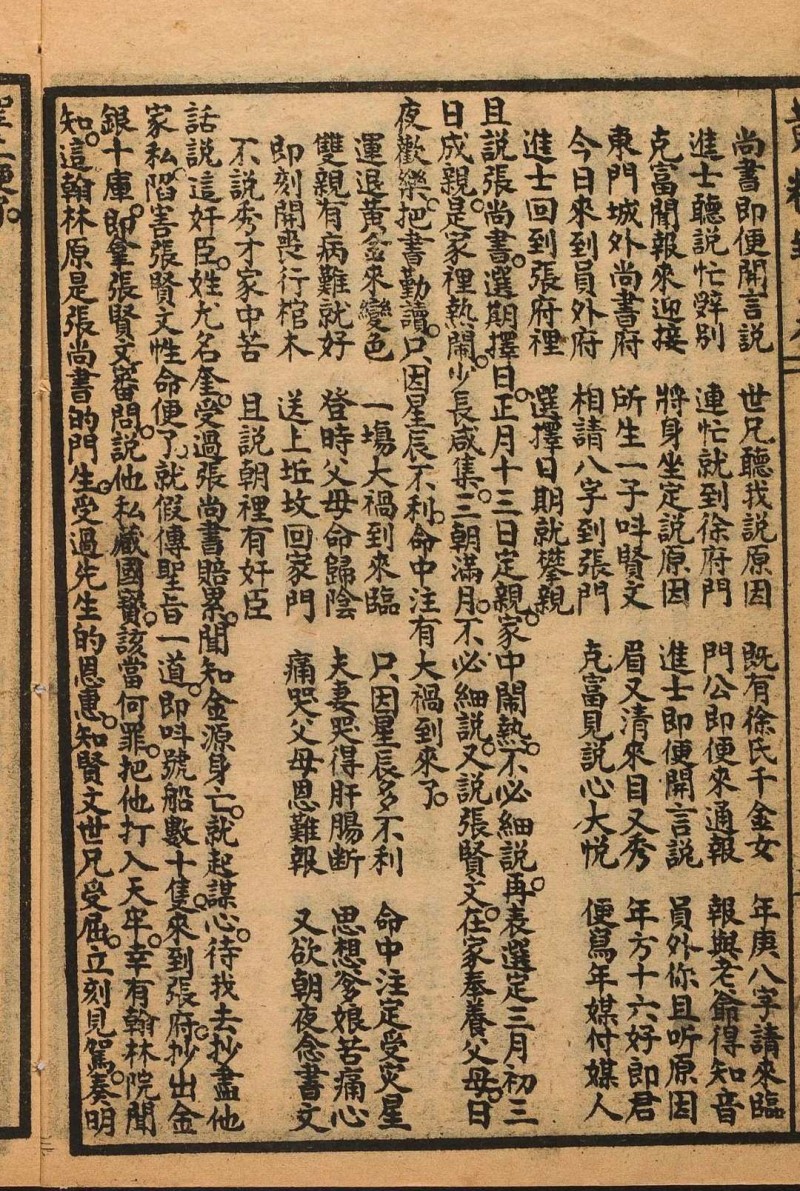 尚書即便開言說　世兄聽我說原因　既有徐氏千金女　年庚八字請來臨
進士聽說忙辭別　連忙就到徐府門　門公即便來通報　報與老爺得知音
克富聞報來迎接　將身坐定說原因　進士即便開言說　員外你且听原因
東門城外尚書府　所生一子呌賢文　眉又清來目又秀　年方十六好郎君
今日來到員外府　相請八字到張門　克富見說心大悅　便寫年媒付媒人
進士回到張府裡　選擇日期就攀親
且說張尚書。選期擇日。正月十三日定親。家中鬧熱。不必細說。再表選定三月初三
日成親。是家裡熱鬧。少長咸集。三朝滿月。不必細說。又說張賢文。在家奉養父母。日
夜歡樂。把書勤讀。只因星辰不利。命中注有大禍到來了。
運退黃金來變色　一塲大禍到來臨　只因星辰多不利　命中注定受災星
雙親有病難就好　登時父母命歸陰　夫妻哭得肝腸斷　思想爹娘苦痛心
即刻開喪行棺木　送上坵坟回家門　痛哭父母恩難報　又欲朝夜念書文
不說秀才家中苦　且說朝裡有奸臣
話說這奸臣。姓尤名奎。受過張尚書賠累。聞知金源身亡。就起謀心。待我去抄盡他
家私。陷害張賢文性命便了。就假傳聖旨一道。即呌號船數十隻。來到張府。抄出金
銀十庫。即拿張賢文審問。說他私藏國寶。該當何罪。把他打入天牢。幸有翰林院聞
知。這翰林原是張尚書的門生。受過先生的恩惠。知賢文世兄受屈。立刻見駕。奏明